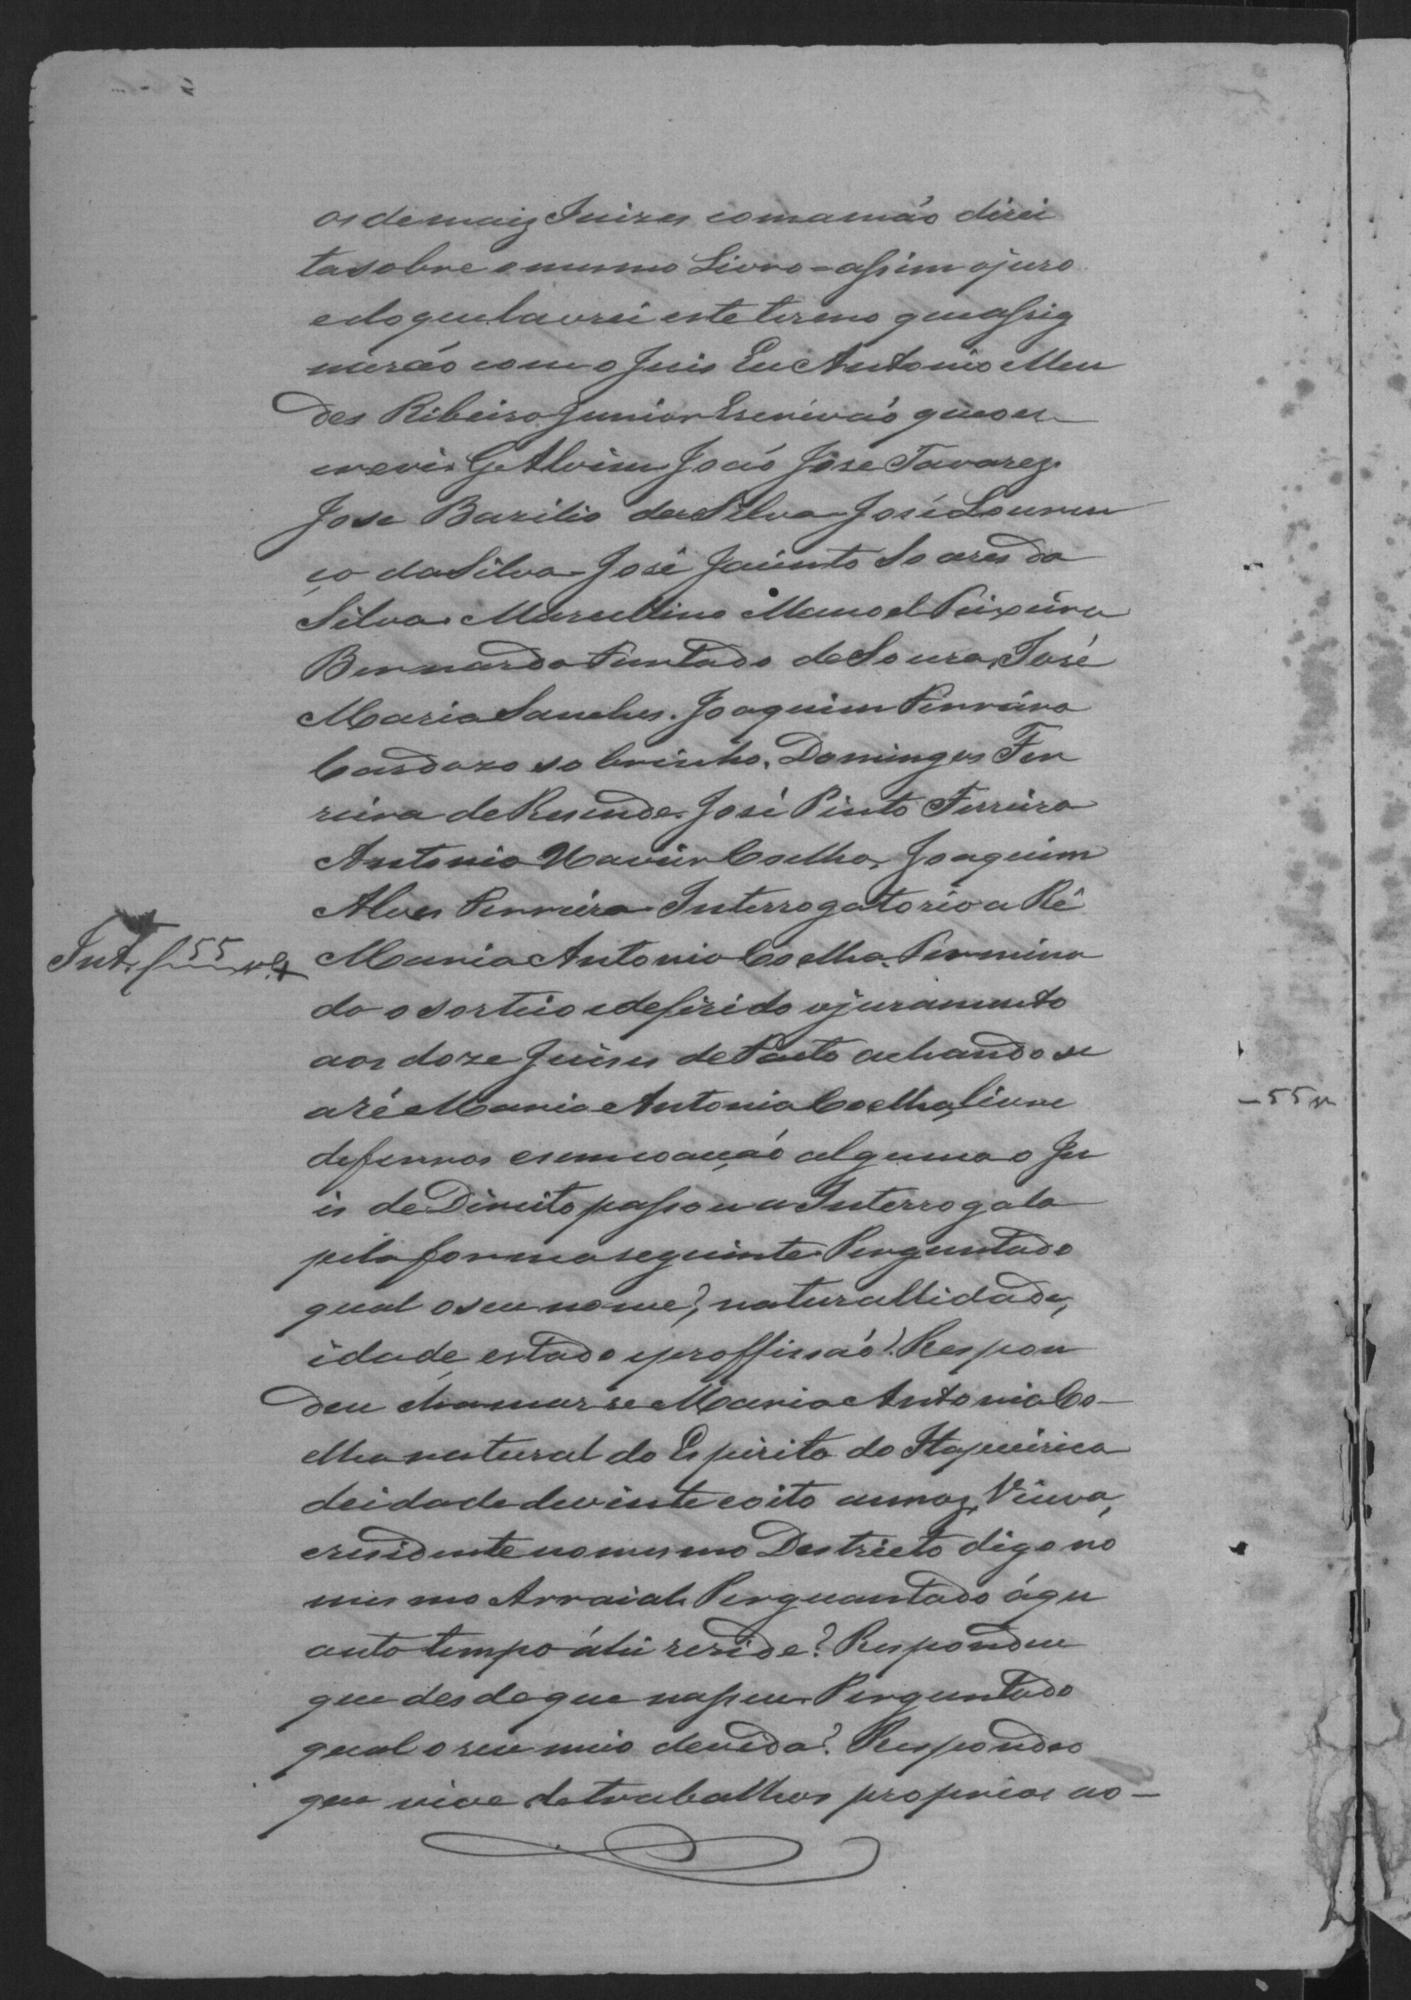 os demaiz Juizes com a mão direi
ta sobre o mesmo Livro = assim o juro
e do que lavrei este termo que assig
narão com o Juis Eu Antonio Men
des Ribeiro Junior Escrivão que o es
crevi. G. Alvim João Jose Tavarez.
Jose Bazilio da Silva José Louren
ço da Silva - José Jacinto Soares da
Silva. Marcellino Manoel Teixeira
Bernardo Furtado de Souza, José
Maria Sanches. Joaquim Ferreira
Cardozo sobrinho, Domingos Fer
reira de Resende. José Pinto Ferreira
Antonio Xavier Coelho, Joaquim
Alves Ferreira Interrogatorio a Rê
Int. f 55 v
Maria Antonia Coelha. Termina
do o sorteio e defirido o juramento
aos doze Juises de Facto achando se
a ré Maria Antonia Coelha, livre
de ferros e sem coacção alguma o Ju
is de Direito passou a Interrogala
pela forma seguinte Perguntado
qual o seu nome?, naturallidade,
idade, estado e proffissão? Respon
deu chamar se Maria Antonia Co-
elha natural do Espirito do Itapecirica
de idade de vinte e oito annoz, Viuva,
e residente no mesmo Destricto digo no
mesmo Arraial. Perguantado á qu
anto tempo áhi reside? Respondeu
que desde que nasseu. Perguntado
qual o seu meio de vida? Respondeo
que vive de trabalhos proprios ao -
- 55 v